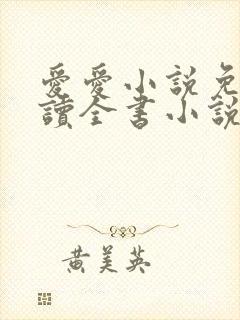 愛愛小説免
讀全書小說
黃美英